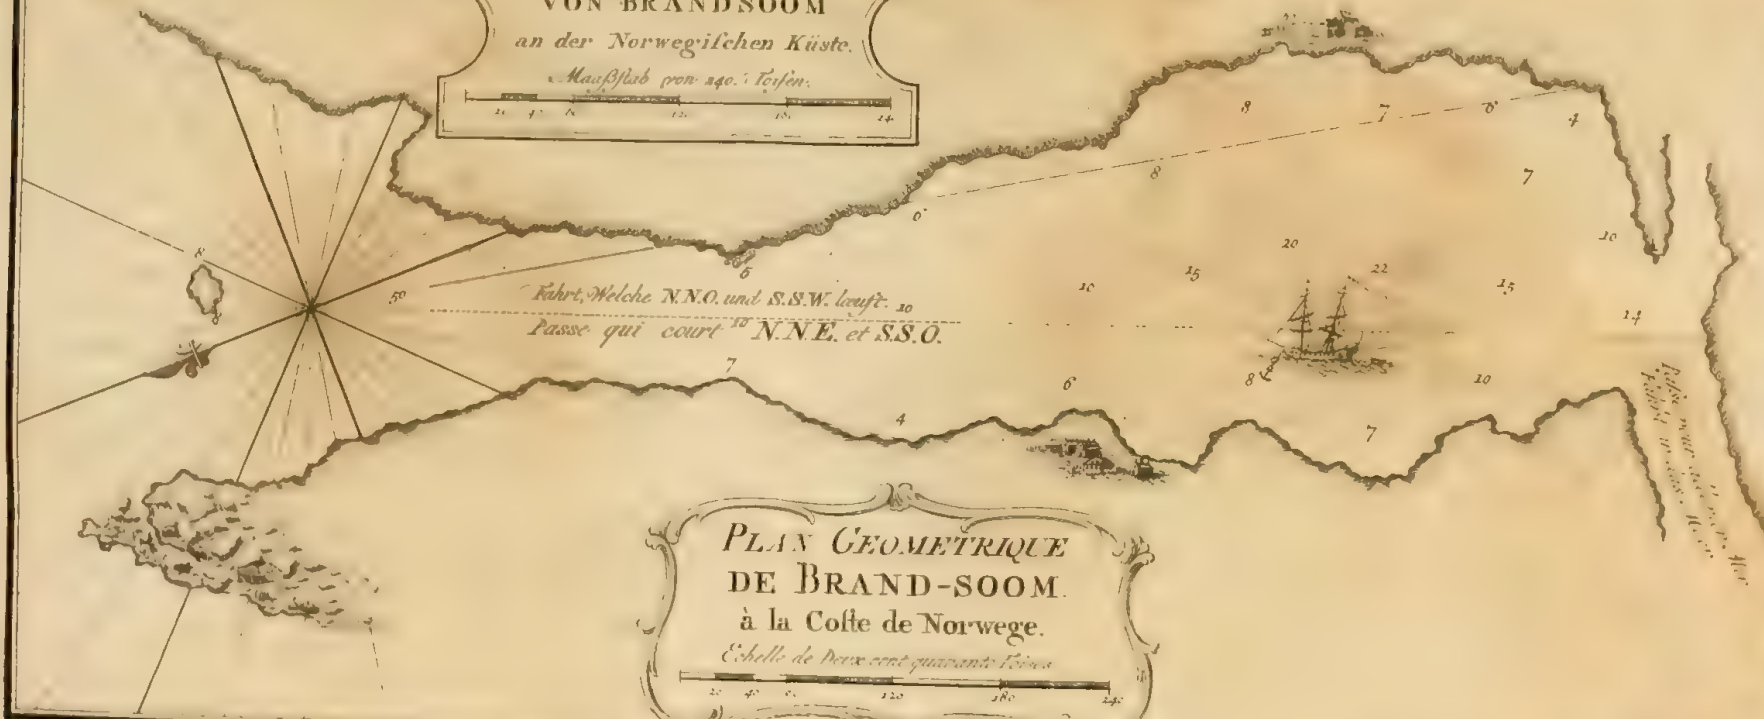 VON BRANDSOOM
an der Norwegiſchen Küste.
Maaßſtab von 240. Toiſen.
20 40 60 120 180 24
8 7 6 4
8 7
6 10
20
5 15 22
8 50 10 15
Fahrt, Welche N.N.O. und S.S.W. lœuft. 10
14
Passe qui court 10 N.N.E. et S.S.O.
7 6 8 10
4 7
Passe pour
PLAN GEOMETRIQUE
DE BRAND-SOOM.
à la Coſte de Norwege.
Echelle de Deux cent quarante Toises
20 40 60 120 180 240